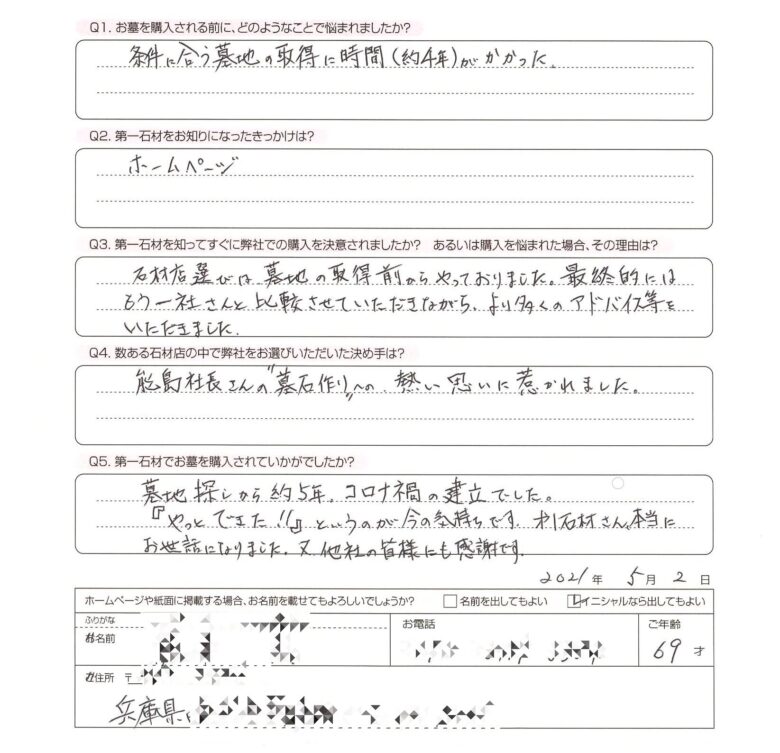 Q1. お墓を購入される前に、どのようなことで悩まれましたか?
条件に合う墓地の取得に時間(約4年)がかかった。
Q2. 第一石材をお知りになったきっかけは?
ホームページ
Q3. 第一石材を知ってすぐに弊社での購入を決意されましたか? あるいは購入を悩まれた場合、その理由は?
石材店選びは墓地の取得前からやっておりました。最終的には
もう一社さんと比較させていただきながら、より多くのアドバイス等を
いただきました。
Q4. 数ある石材店の中で弊社をお選びいただいた決め手は?
能島社長さんの"墓石作り"への、熱い思いに惹かれました。
Q5. 第一石材でお墓を購入されていかがでしたか?
墓地探しから約5年、コロナ禍の建立でした。
『やっとできた!!』というのが今の気持ちです。 石材さん、本当に
お世話になりました。又他社の皆様にも感謝です。
2021年 5月 2日
ホームページや紙面に掲載する場合、お名前を載せてもよろしいでしょうか? 名前を出してもよい イニシャルなら出してもよい
ふりがな お電話 ご年齢
お名前 69才
ご住所 〒
兵庫県